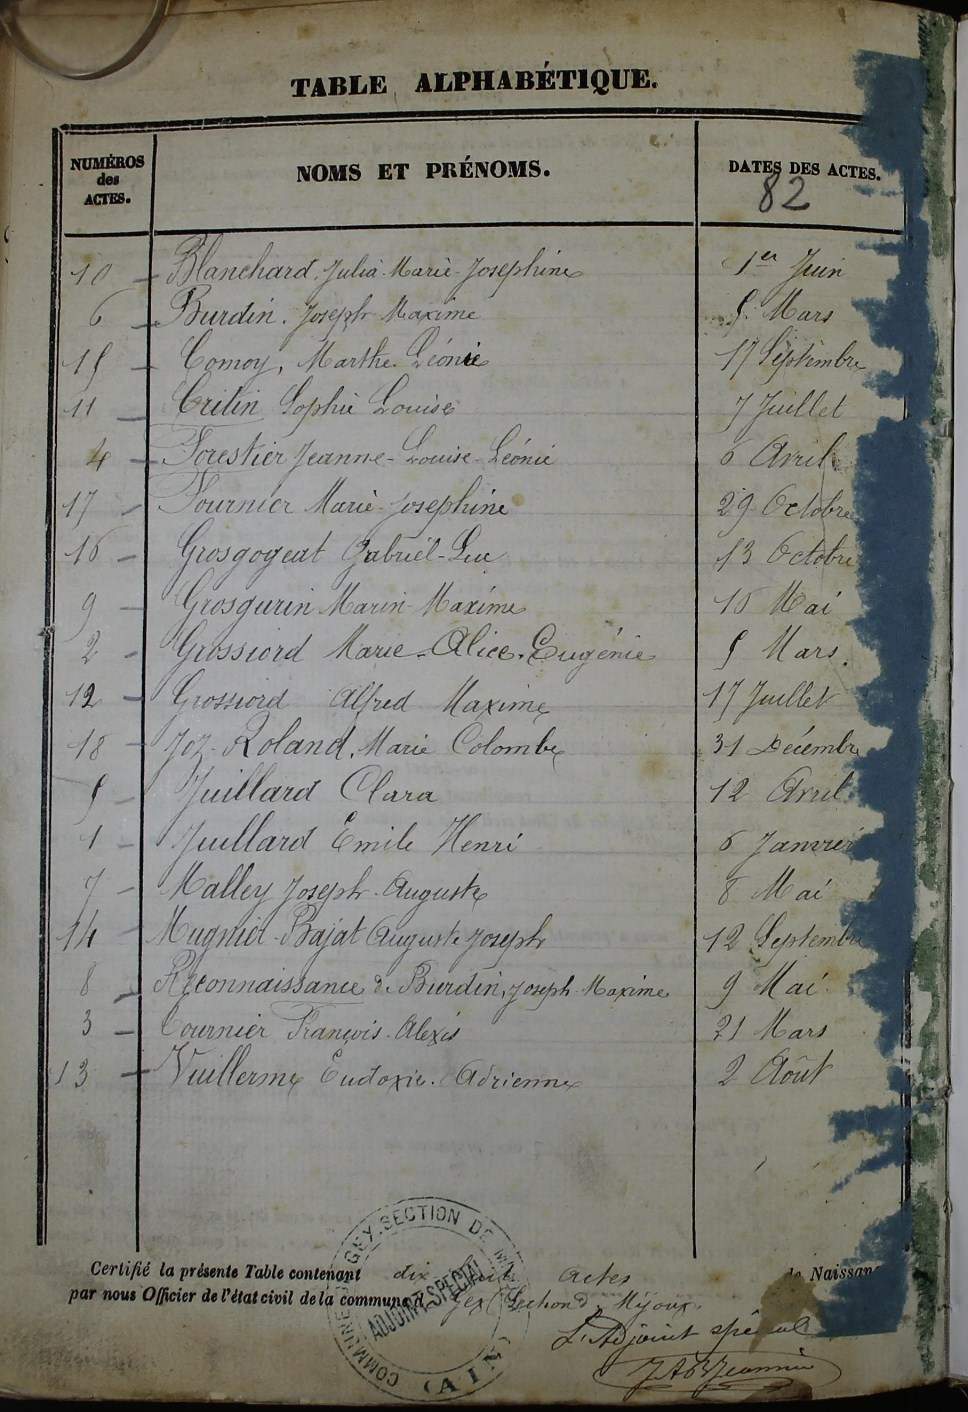 TABLE ALPHABÉTIQUE.
NUMÉROS des ACTES. NOMS ET PRÉNOMS. DATES DES ACTES.
82
10 Blanchard, Julia-Marie-Josephine 1er Juin
6 Burdin. Joseph Maxime 5 Mars
15 Comoy, Marthe Léonie 17 Septembre
11 Critin Sophie Louise 7 Juillet
4 Forestier Jeanne-Louise-Léonie 6 Avril
17 Fournier Marie-Josephine 29 Octobre
16 Grosgogeat Gabriel-Luc 13 Octobre
9 Grosgurin Marin-Maxime 16 Mai
2 Grossiord Marie-Alice-Eugénie 5 Mars
12 Grossiord Alfred Maxime 17 Juillet
18 Joz-Roland, Marie Colombe 31 Décembre
5 Juillard Clara 12 Avril
1 Juillard Emile Henri 6 Janvier
7 Malley Joseph-Auguste 8 Mai
14 Mugnier-Bajat Auguste Joseph 12 Septembre
8 Reconnaissance de Burdin, Joseph-Maxime 9 Mai
3 Tournier François-Alexis 21 Mars
13 Vuillerme Eudoxie. Adrienne 2 Août
Certifié la présente Table contenant dix huit actes de Naissan
par nous Officier de l'état civil de la commune d Gex (Section de Mijoux
L'Adjoint spécial
COMMUNE GEX. SECTION DE
ADJOINT SPÉCIAL
(AIN)